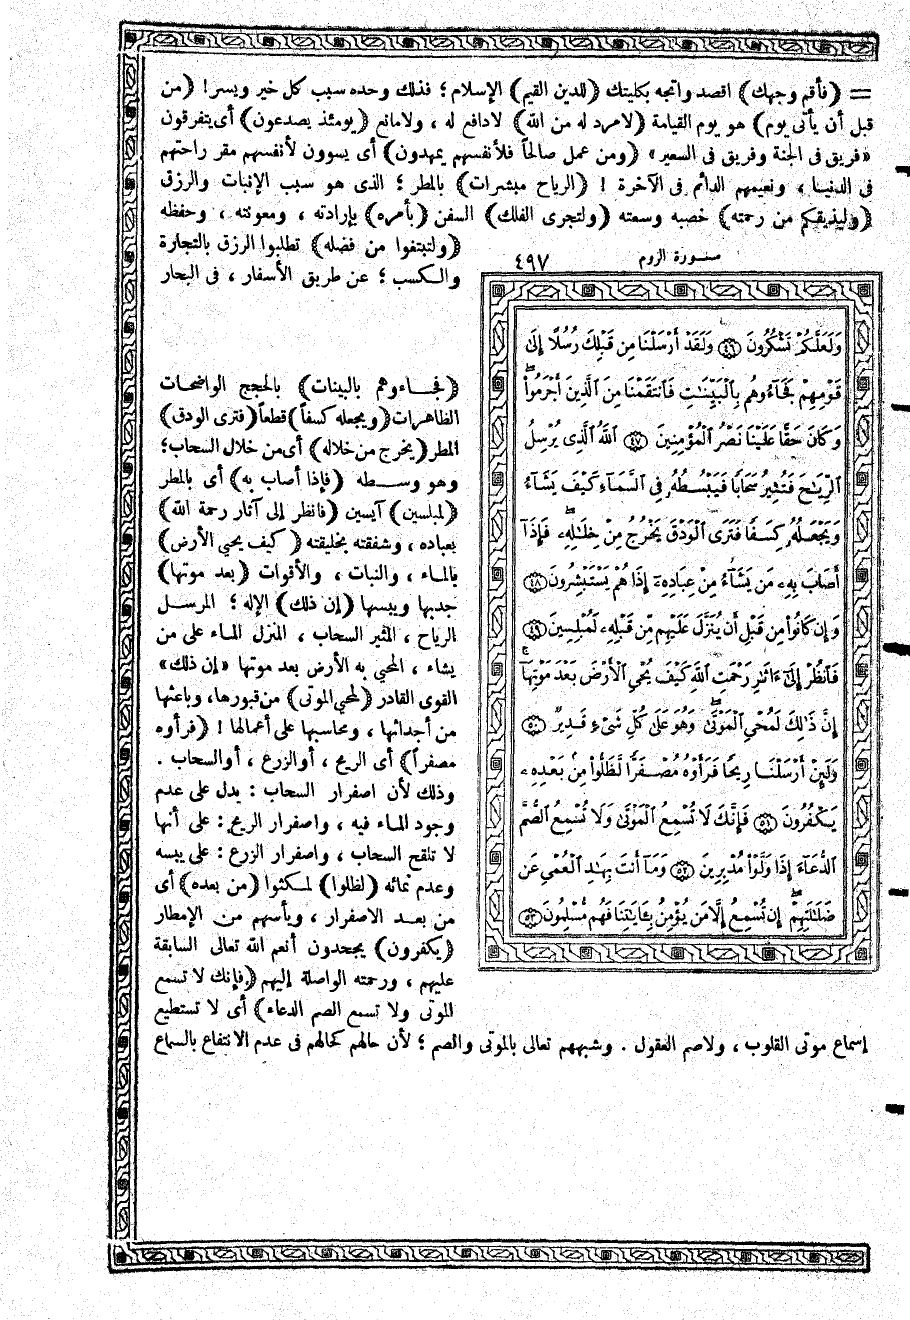 = (فأقم وجهك) اقصد واتجه بكليتك (للدين القيم) الإسلام ؛ فذلك وحده سبب كل خير ويسر! (من
قبل أن يأتى يوم) هو يوم القيامة (لا مرد له من الله) لا دافع له ، ولا مانع (يومئذ يصدعون) أى يتفرقون
«فريق فى الجنة وفريق فى السعير» (ومن عمل صالحاً فلأنفسهم يمهدون) أى يسوون لأنفسهم مقر راحتهم
فى الدنيا ، ونعيمهم الدائم فى الآخرة ! (الرياح مبشرات) بالمطر ؛ الذى هو سبب الإنبات والرزق
(وليذيقكم من رحمته) خصبه وسعته (ولتجرى الفلك) السفن (بأمره) بإرادته ، ومعونته ، وحفظه
(ولتبتغوا من فضله) تطلبوا الرزق بالتجارة
والكسب ؛ عن طريق الأسفار ، فى البحار
سورة الروم ٤٩٧
وَلَعَلَّكُمْ تَشْكُرُونَ ٤٦ وَلَقَدْ أَرْسَلْنَا مِن قَبْلِكَ رُسُلًا إِلَىٰ
قَوْمِهِمْ فَجَآءُوهُم بِٱلْبَيِّنَٰتِ فَٱنتَقَمْنَا مِنَ ٱلَّذِينَ أَجْرَمُوا۟ۖ
وَكَانَ حَقًّا عَلَيْنَا نَصْرُ ٱلْمُؤْمِنِينَ ٤٧ ٱللَّهُ ٱلَّذِى يُرْسِلُ
ٱلرِّيَٰحَ فَتُثِيرُ سَحَابًا فَيَبْسُطُهُۥ فِى ٱلسَّمَآءِ كَيْفَ يَشَآءُ
وَيَجْعَلُهُۥ كِسَفًا فَتَرَى ٱلْوَدْقَ يَخْرُجُ مِنْ خِلَٰلِهِۦۖ فَإِذَآ
أَصَابَ بِهِۦ مَن يَشَآءُ مِنْ عِبَادِهِۦٓ إِذَا هُمْ يَسْتَبْشِرُونَ ٤٨
وَإِن كَانُوا۟ مِن قَبْلِ أَن يُنَزَّلَ عَلَيْهِم مِّن قَبْلِهِۦ لَمُبْلِسِينَ ٤٩
فَٱنظُرْ إِلَىٰٓ ءَاثَٰرِ رَحْمَتِ ٱللَّهِ كَيْفَ يُحْىِ ٱلْأَرْضَ بَعْدَ مَوْتِهَآۚ
إِنَّ ذَٰلِكَ لَمُحْىِ ٱلْمَوْتَىٰۖ وَهُوَ عَلَىٰ كُلِّ شَىْءٍ قَدِيرٌ ٥٠
وَلَئِنْ أَرْسَلْنَا رِيحًا فَرَأَوْهُ مُصْفَرًّا لَّظَلُّوا۟ مِنۢ بَعْدِهِۦ
يَكْفُرُونَ ٥١ فَإِنَّكَ لَا تُسْمِعُ ٱلْمَوْتَىٰ وَلَا تُسْمِعُ ٱلصُّمَّ
ٱلدُّعَآءَ إِذَا وَلَّوْا۟ مُدْبِرِينَ ٥٢ وَمَآ أَنتَ بِهَٰدِ ٱلْعُمْىِ عَن
ضَلَٰلَتِهِمْۖ إِن تُسْمِعُ إِلَّا مَن يُؤْمِنُ بِـَٔايَٰتِنَا فَهُم مُّسْلِمُونَ ٥٣
(فجاءوهم بالبينات) بالحجج الواضحات
الظاهرات (ويجعله كسفاً) قطعاً (فترى الودق)
المطر (يخرج من خلاله) أى من خلال السحاب ؛
وهو وسطه (فإذا أصاب به) أى بالمطر
(لمبلسين) آيسين (فانظر إلى آثار رحمة الله)
بعباده ، وشفقته بخليقته (كيف يحيي الأرض)
بالماء ، والنبات ، والأقوات (بعد موتها)
جدبها ويبسها (إن ذلك) الإله ؛ المرسل
الرياح ، المثير السحاب ، المنزل الماء على من
يشاء ، المحيي به الأرض بعد موتها «إن ذلك»
القوى القادر (لمحيي الموتى) من قبورها ، وباعثها
من أجداثها ، ومحاسبها على أعمالها ! (فرأوه
مصفراً) أى الريح ، أو الزرع ، أو السحاب .
وذلك لأن اصفرار السحاب : يدل على عدم
وجود الماء فيه ، واصفرار الريح : على أنها
لا تلقح السحاب ، واصفرار الزرع : على يبسه
وعدم نمائه (لظلوا) لمكثوا (من بعده) أى
من بعد الاصفرار ، ويأسهم من الإمطار
(يكفرون) يجحدون أنعم الله تعالى السابقة
عليهم ، ورحمته الواصلة إليهم (فإنك لا تسمع
الموتى ولا تسمع الصم الدعاء) أى لا تستطيع
إسماع موتى القلوب ، ولا صم العقول . وشبههم تعالى بالموتى والصم ؛ لأن حالهم كحالهم فى عدم الانتفاع بالسماع